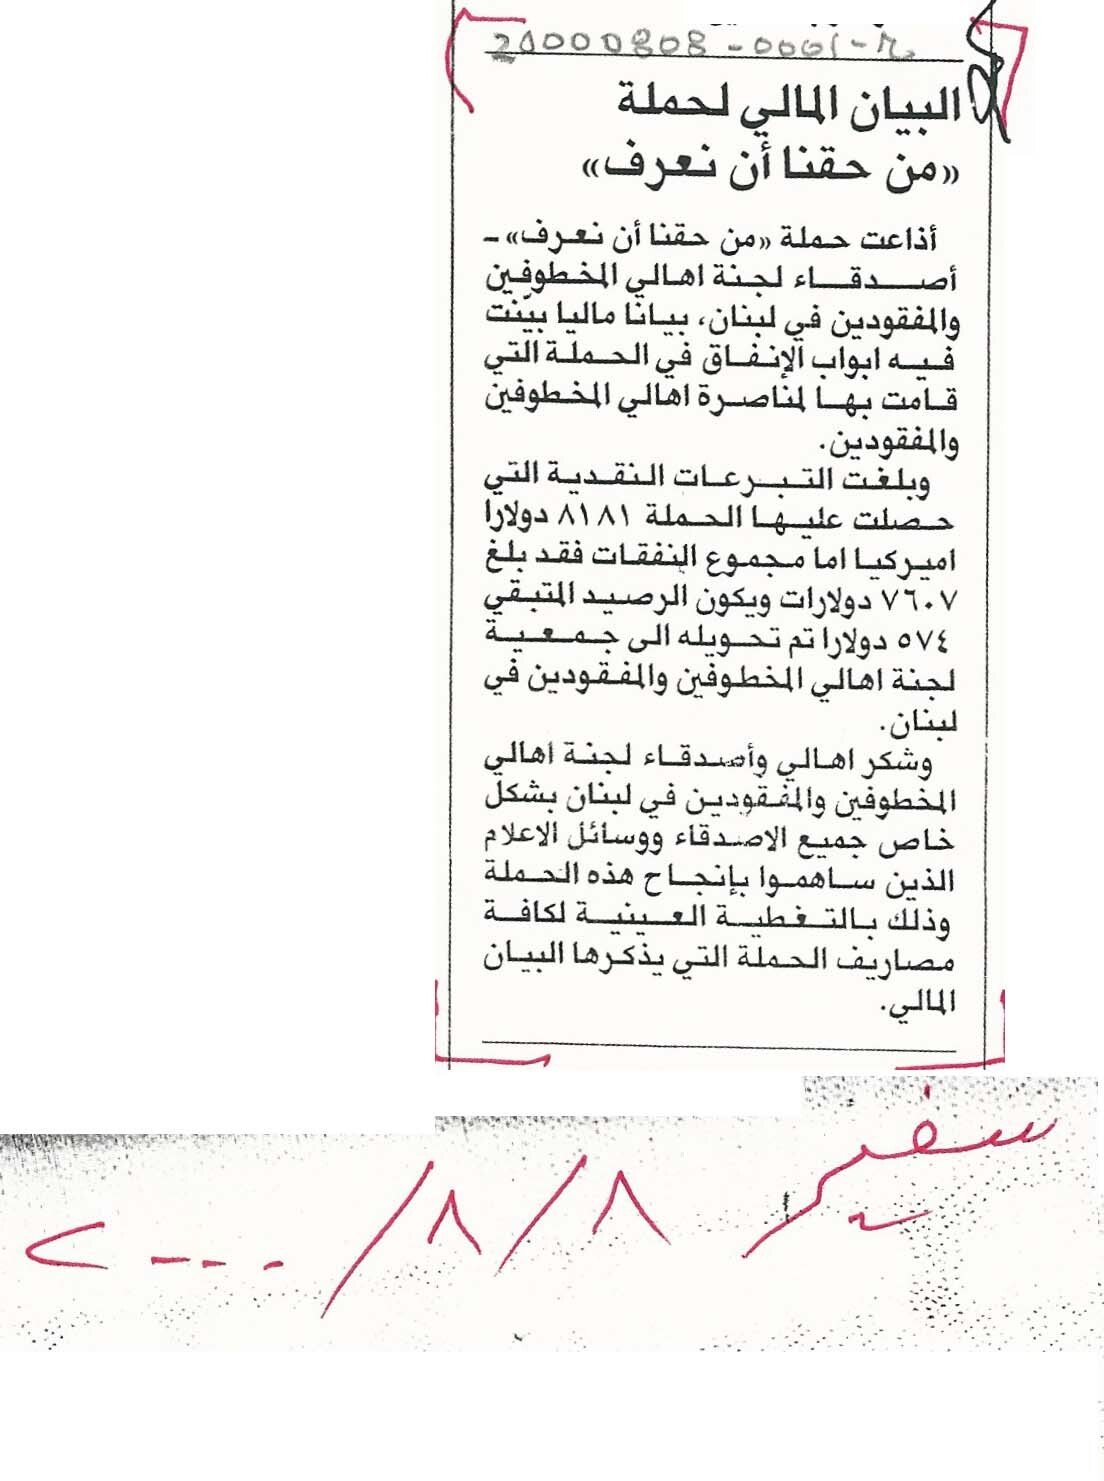 20000808-0001-R
البيان المالي لحملة
«من حقنا أن نعرف»
أذاعت حملة «من حقنا أن نعرف» ـ
أصدقاء لجنة اهالي المخطوفين
والمفقودين في لبنان، بيانا ماليا بيّنت
فيه ابواب الإنفاق في الحملة التي
قامت بها لمناصرة اهالي المخطوفين
والمفقودين.
وبلغت التبرعات النقدية التي
حصلت عليها الحملة ٨١٨١ دولارا
اميركيا اما مجموع النفقات فقد بلغ
٧٦٠٧ دولارات ويكون الرصيد المتبقي
٥٧٤ دولارا تم تحويله الى جمعية
لجنة اهالي المخطوفين والمفقودين في
لبنان.
وشكر اهالي وأصدقاء لجنة اهالي
المخطوفين والمفقودين في لبنان بشكل
خاص جميع الاصدقاء ووسائل الاعلام
الذين ساهموا بإنجاح هذه الحملة
وذلك بالتغطية العينية لكافة
مصاريف الحملة التي يذكرها البيان
المالي.
سفير ٨/٨/٢٠٠٠